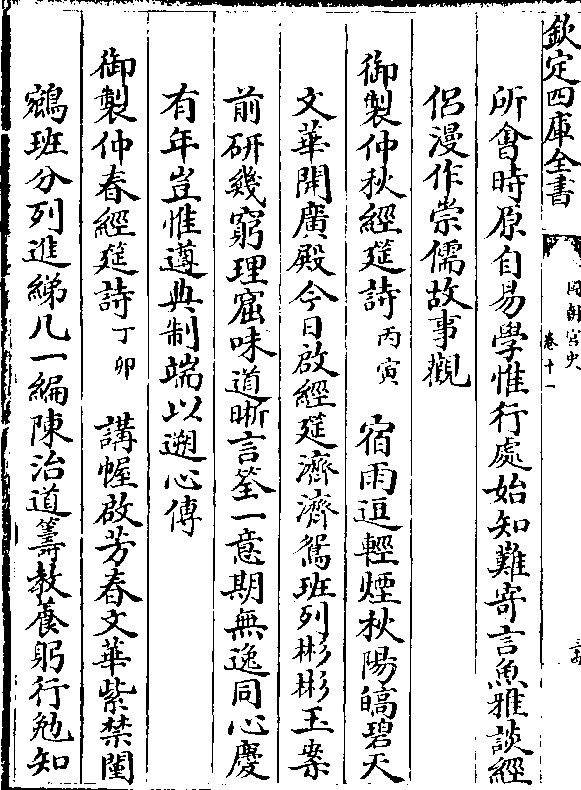 欽定四庫全書
國朝宮史
卷十一
所會時原自易學惟行處始知難寄言魚雅談經
侶漫作崇儒故事觀
御製仲秋經筵詩丙寅　宿雨逗輕煙秋陽皜碧天
文華開廣殿今日啟經筵濟濟鴛班列彬彬玉案
前研幾窮理窟味道晣言筌一意期無逸同心慶
有年豈惟遵典制端以遡心傳
御製仲春經筵詩丁卯　講幄啟芳春文華紫禁闉
鵷班分列進綈几一編陳治道籌教養躬行勉知